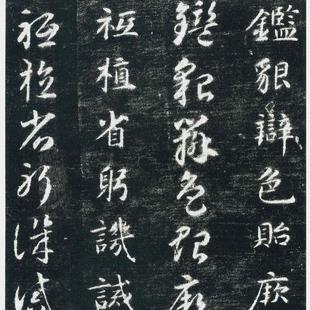 鑑貌辯色貽厥
鑑貌辯色貽厥
祗植省躬譏誡
祗植省躬譏誡